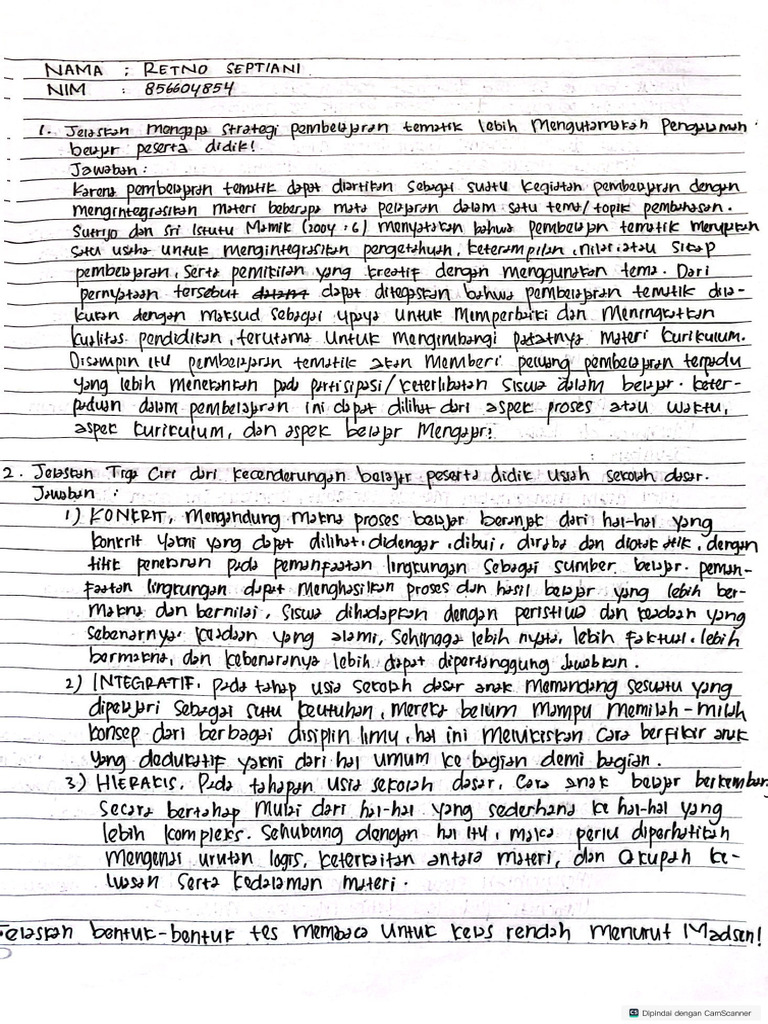 NAMA : RETNO SEPTIANI
NIM : 856604854
1. Jelaskan mengapa strategi pembelajaran tematik lebih mengutamakan pengalaman
belajar peserta didik!
Jawaban :
Karena pembelajaran tematik dapat diartikan sebagai suatu kegiatan pembelajaran dengan
mengintegrasikan materi beberapa mata pelajaran dalam satu tema/topik pembahasan.
Sutrijo dan Sri Istutu Mamik (2004 : 6) menyatakan bahwa pembelajaran tematik merupkan
satu usaha untuk mengintegrasikan pengetahuan, keterampilan, nilai atau sikap
pembelajaran, serta pemikiran yang kreatif dengan menggunakan tema. Dari
pernyataan tersebut dapat ditegaskan bahwa pembelajaran tematik dila-
kukan dengan maksud sebagai upaya untuk memperbaiki dan meningkatkan
kualitas pendidikan, terutama untuk mengimbangi padatnya materi kurikulum.
Disampin itu pembelajaran tematik akan memberi peluang pembelajaran terpadu
yang lebih menekankan pada partisipasi/keterlibatan siswa dalam belajar. keter-
paduan dalam pembelajaran ini dapat dilihat dari aspek proses atau waktu,
aspek kurikulum, dan aspek belajar mengajar.
2. Jelaskan Tiga Ciri dari kecenderungan belajar peserta didik usiah sekolah dasar.
Jawaban :
1) KONKRIT, mengandung makna proses belajar beranjak dari hal-hal yang
konkrit yakni yang dapat dilihat, didengar, dibui, diraba dan diotak atik, dengan
titik penekanan pada pemanfaatan lingkungan sebagai sumber belajar. peman-
faatan lingkungan dapat menghasilkan proses dan hasil belajar yang lebih ber-
makna dan bernilai, siswa dihadapkan dengan peristiwa dan keadaan yang
sebenarnya. keadaan yang alami, sehingga lebih nyata, lebih faktual, lebih
bermakna, dan kebenaranya lebih dapat dipertanggung jawabkan.
2) INTEGRATIF. Pada tahap usia sekolah dasar anak memandang sesuatu yang
dipelajari sebagai sutu keutuhan, mereka belum mampu memilah-milah
konsep dari berbagai disiplin ilmu, hal ini melukiskan cara berfikir anak
yang deduktif yakni dari hal umum ke bagian demi bagian.
3) HIERAKIS. Pada tahapan usia sekolah dasar, cara anak belajar berkembang
secara bertahap mulai dari hal-hal yang sederhana ke hal-hal yang
lebih kompleks. Sehubung dengan hal itu, maka perlu diperhatikan
mengenai urutan logis, keterkaitan antara materi, dan cakupan ke-
luasan serta kedalaman materi.
Jelaskan bentuk-bentuk tes membaca untuk kelas rendah menurut Madsen!
Dipindai dengan CamScanner